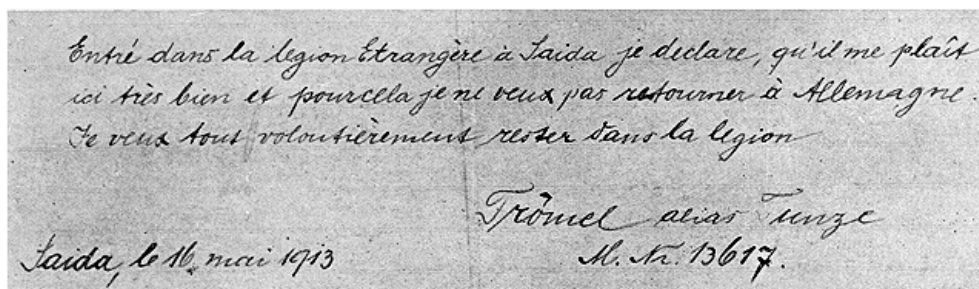 Entré dans la legion Etrangère à Saida je declare, qu'il me plaît
ici très bien et pourcela je ne veux pas retourner à Allemagne.
Je veux tout voloutièrement rester dans la legion
Trömel alias Tunze
Saida, le 16. mai 1913
M. Nr. 13617.